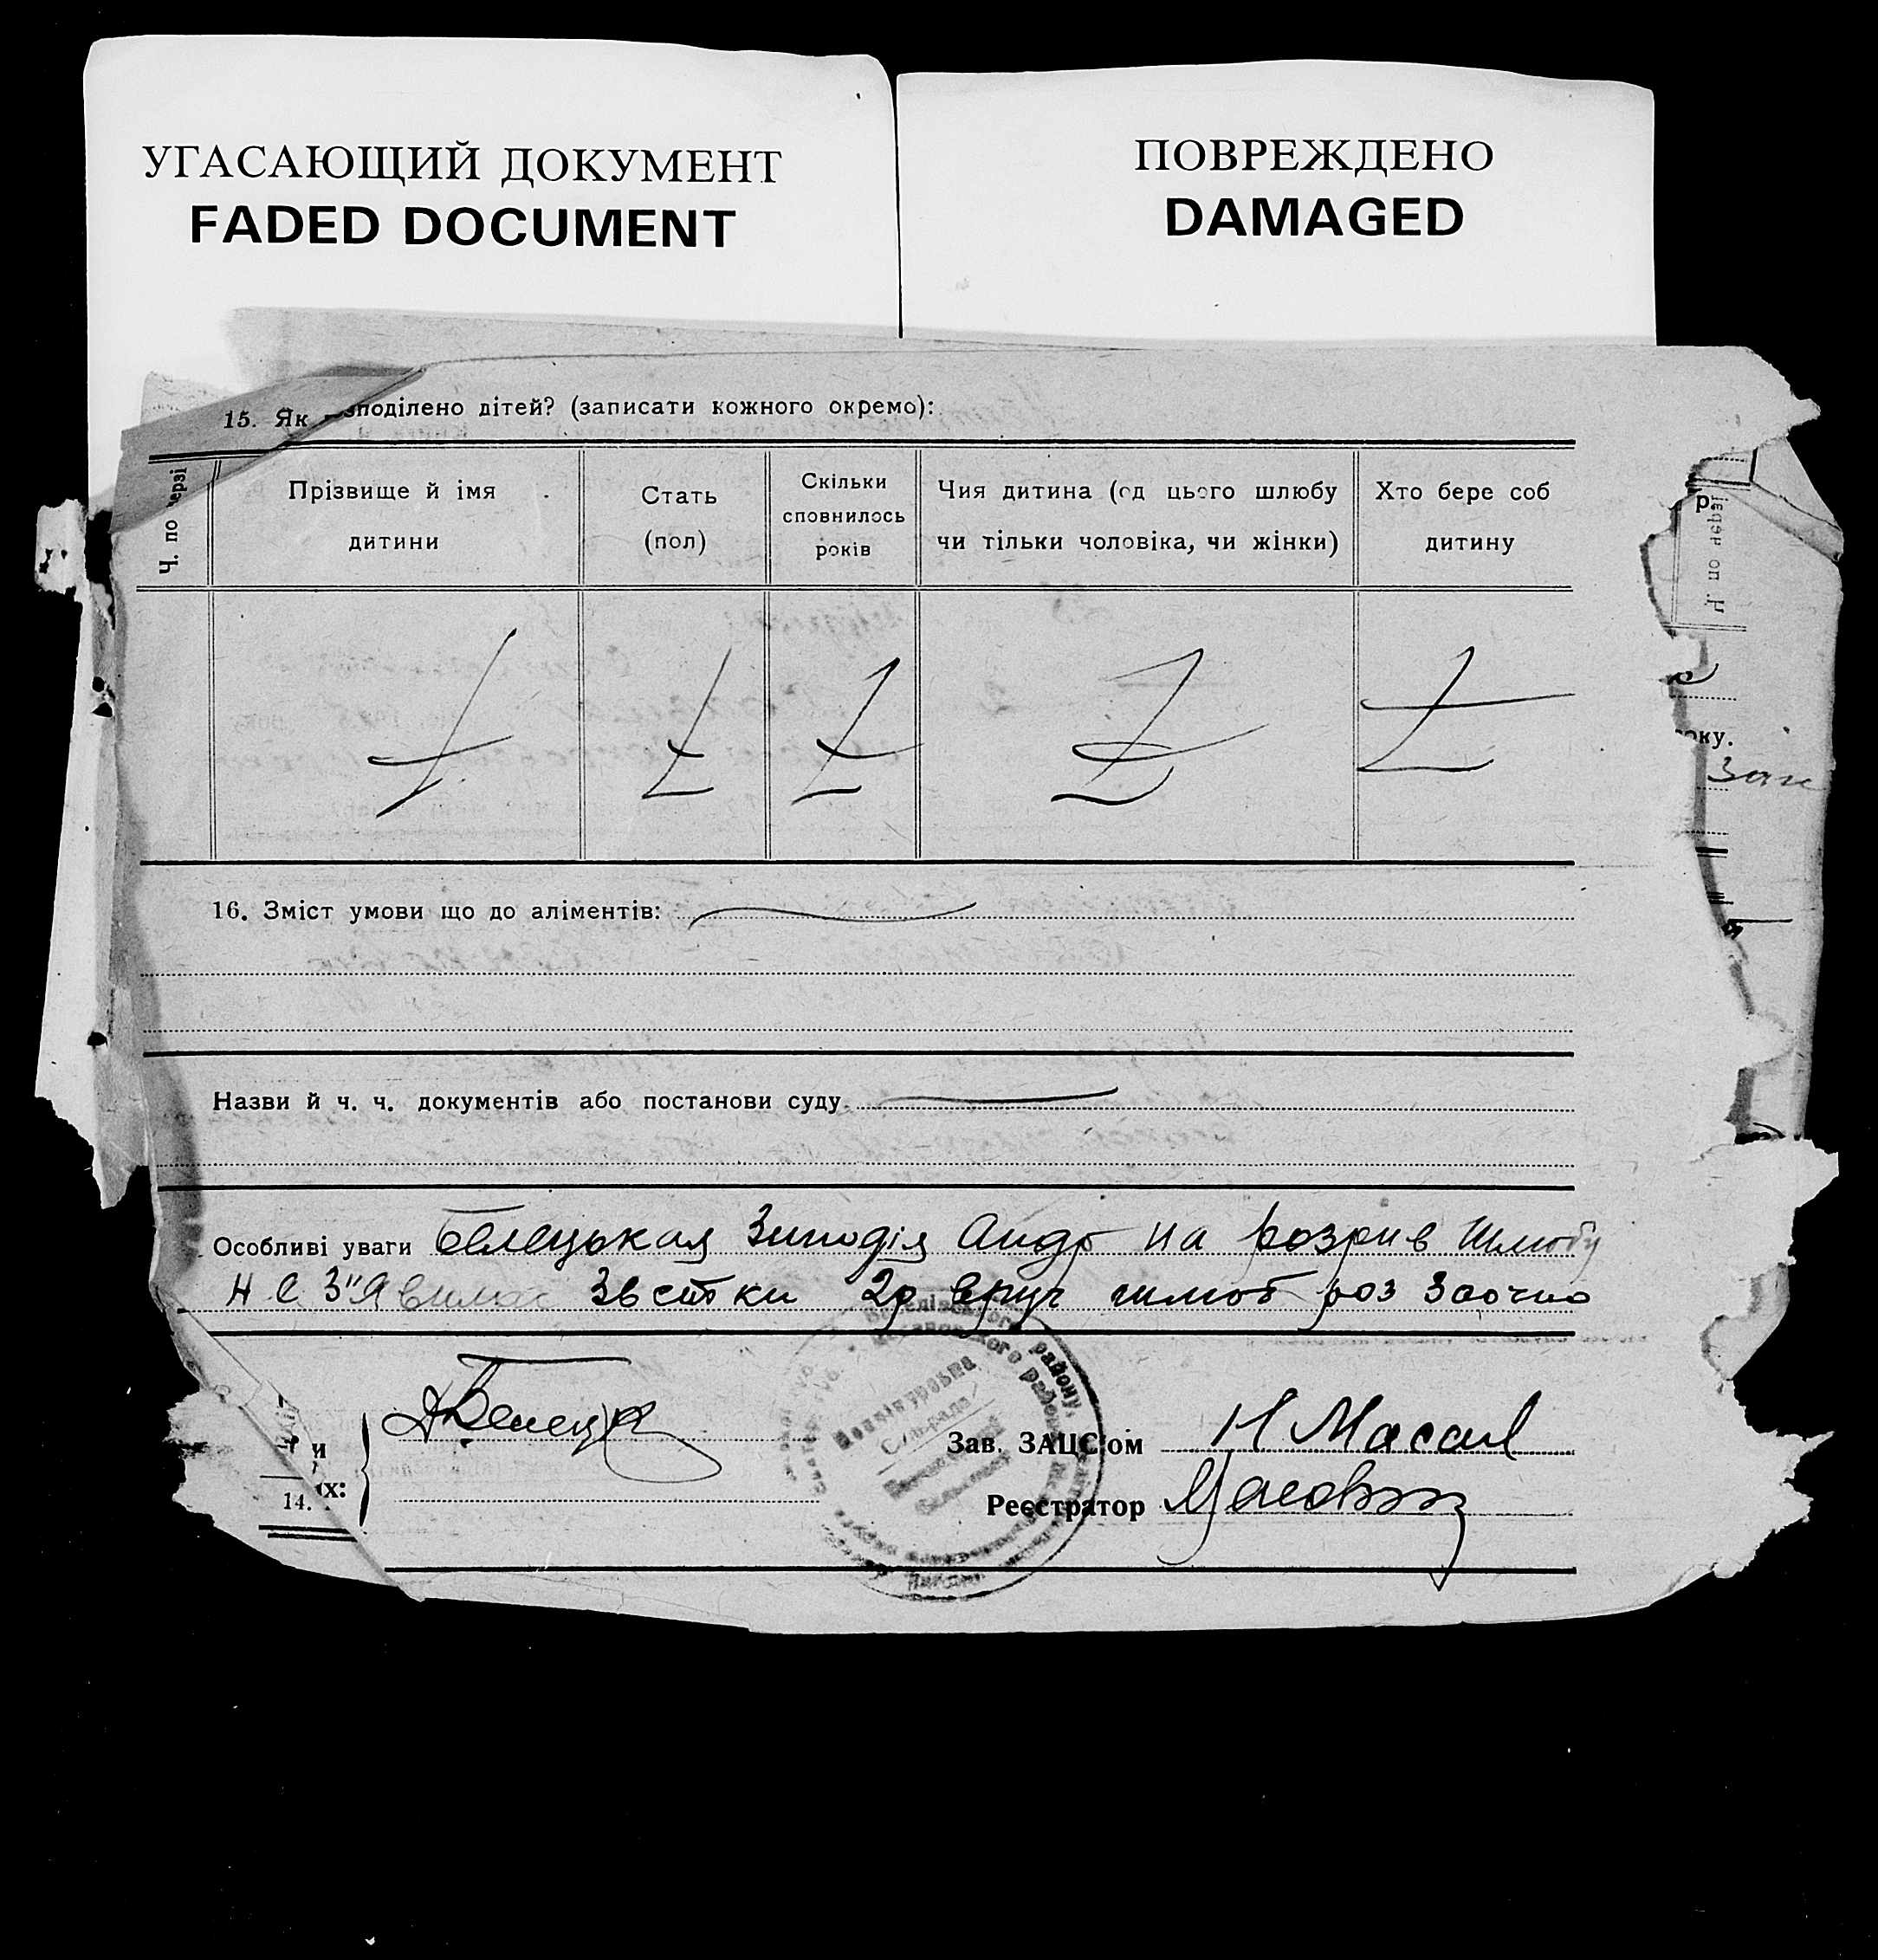 УГАСАЮЩИЙ ДОКУМЕНТ
FADED DOCUMENT
ПОВРЕЖДЕНО
DAMAGED
15. Як зподілено дітей? (записати кожного окремо):
Ч. по черзі
Прізвище й імя дитини
Стать (пол)
Скільки сповнилось років
Чия дитина (од цього шлюбу чи тільки чоловіка, чи жінки)
Хто бере соб дитину
р.
оку.
Зак
16. Зміст умови що до аліментів:
Назви й ч. ч. документів або постанови суду
Особливі уваги Белецькая Зинодія Андр на розрив шлюбу
Не З"Явилас Звстки 2р вруч шлюб роз Заочно
и
х:
14.
району,
Сільрада
Зав. ЗАЦС'ом Н Масал
Реєстратор